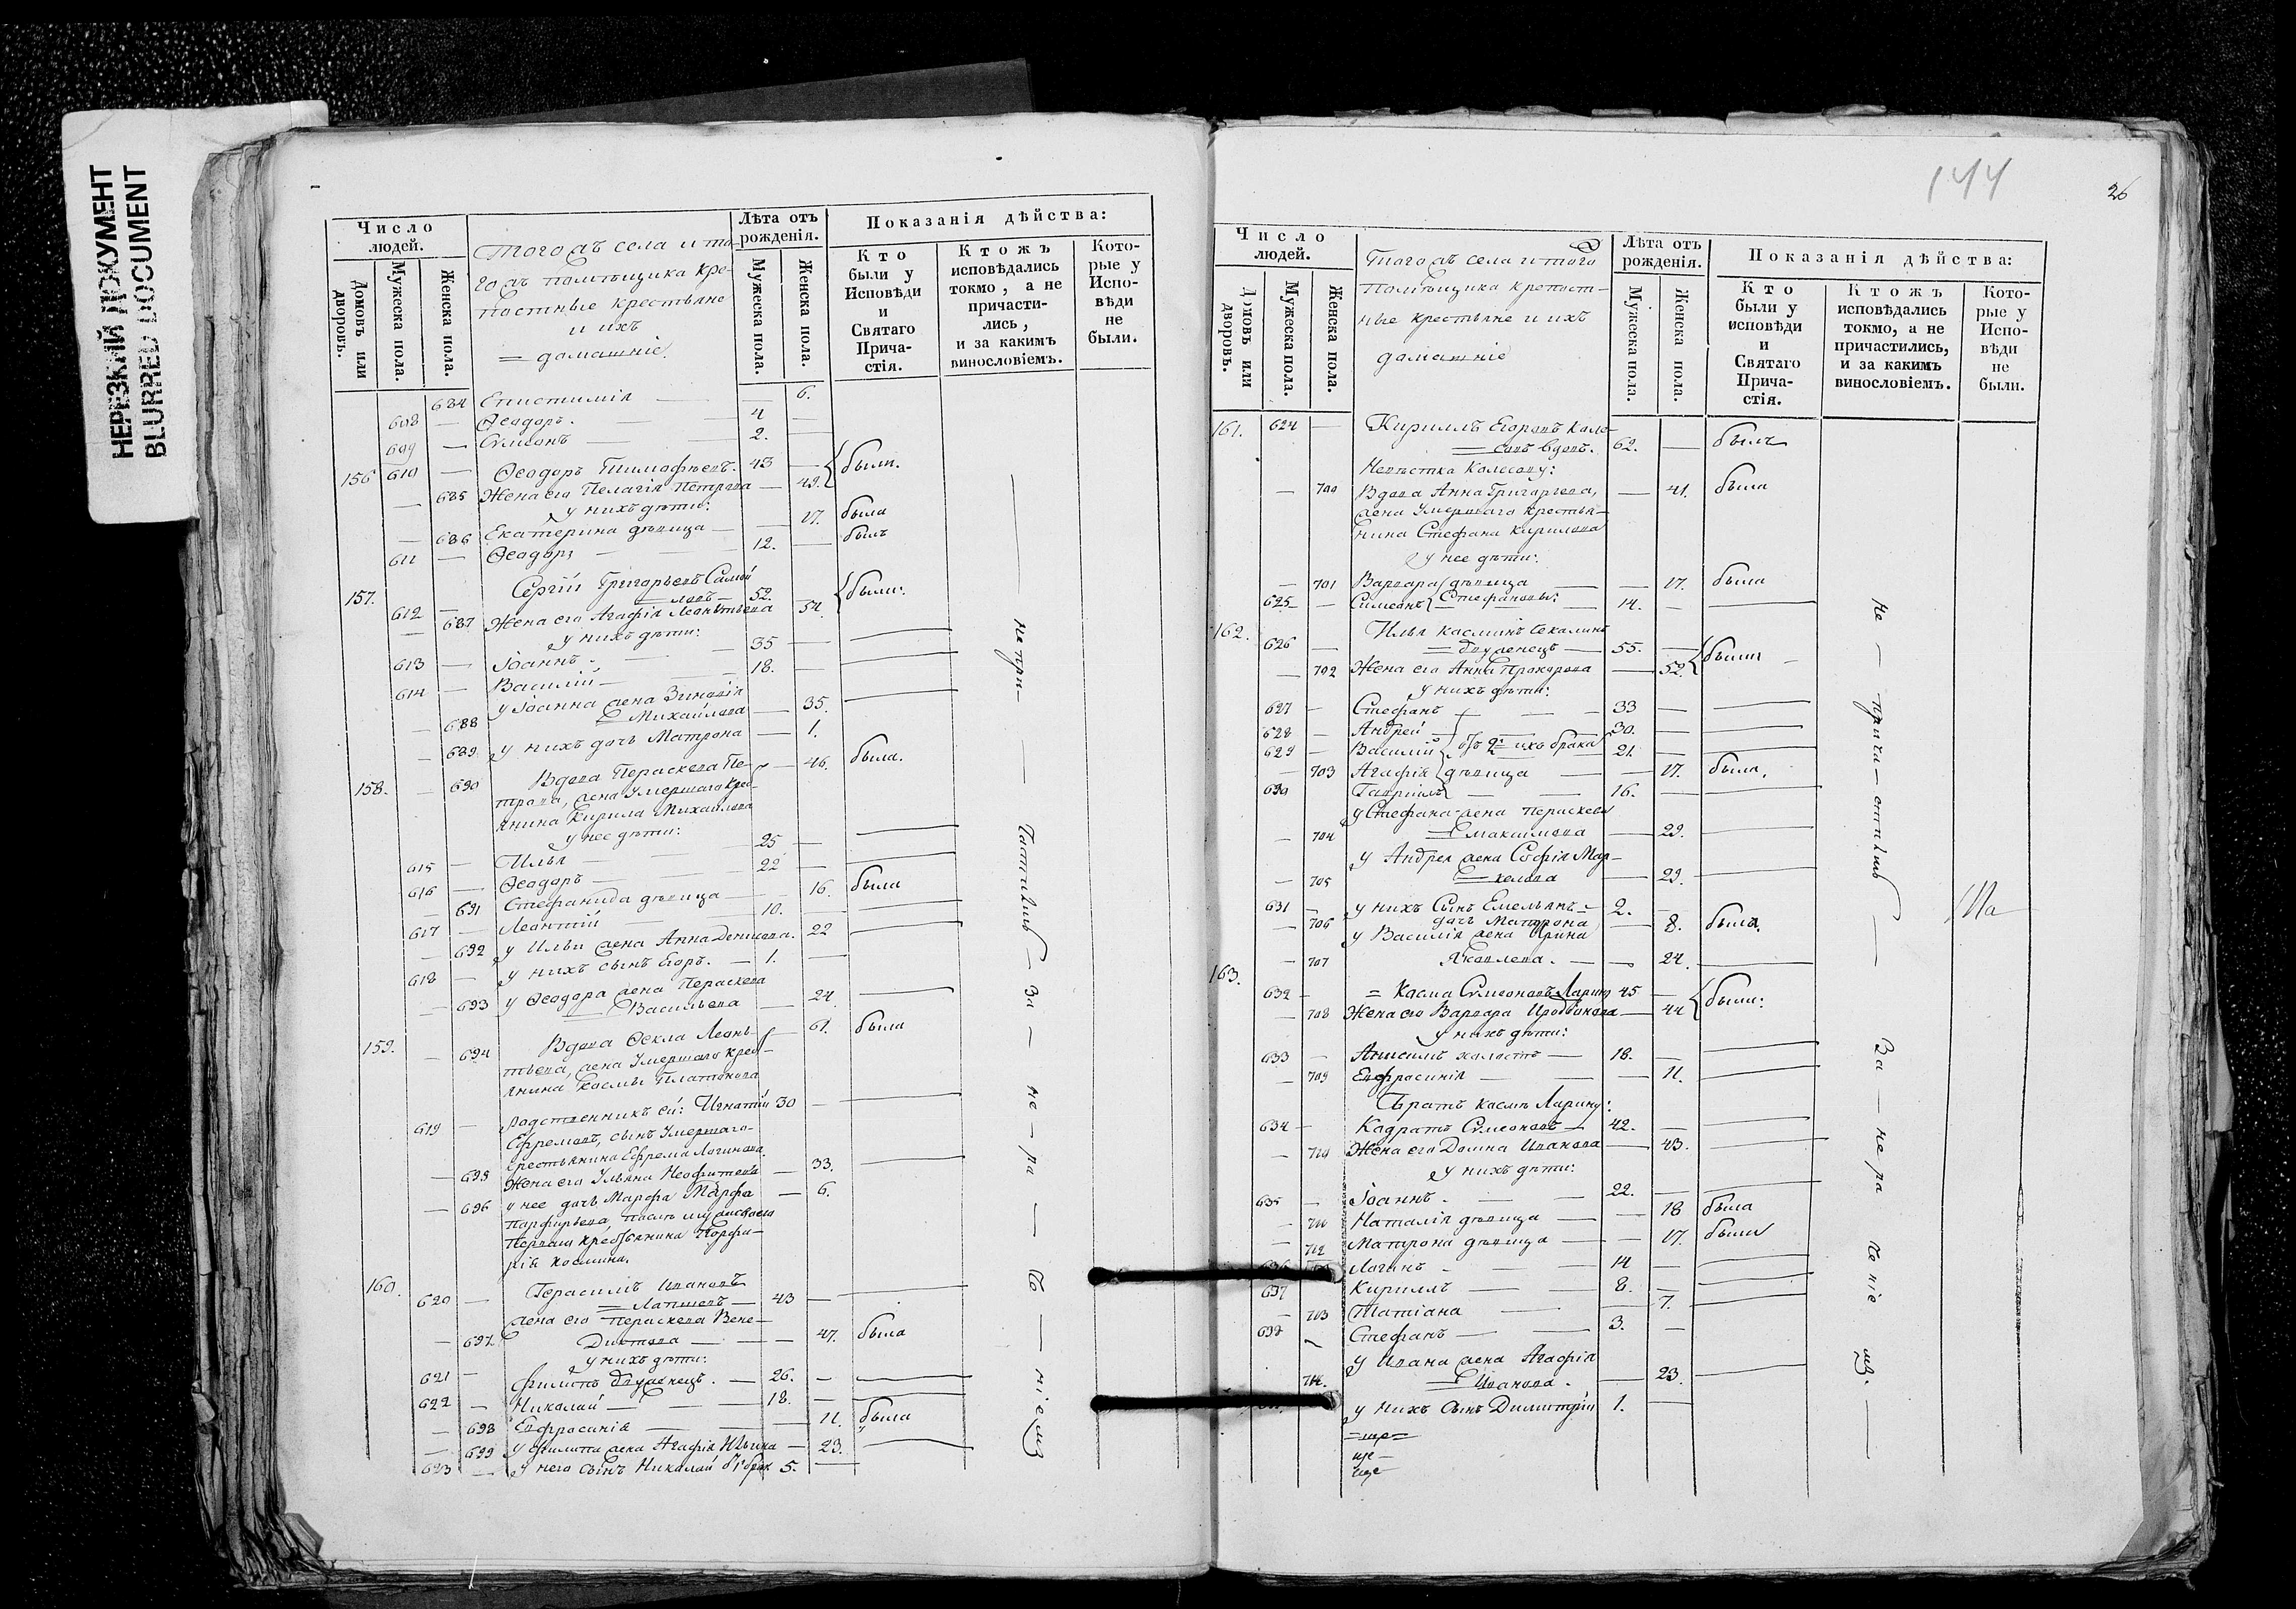 НЕРЕЗКИЙ ДОКУМЕНТ
BLURRED DOCUMENT
Число людей.
Домовъ или дворовъ.
Мужеска пола.
Женска пола.
Тогожъ села и то-
гожъ помѣщика кре-
постные крестьяне
и ихъ
= домашніе.
Лѣта отъ рожденія.
Мужеска пола.
Женска пола.
Показанія дѣйства:
Кто были у Исповѣди и Святаго Прича-стія.
Ктожъ исповѣдались токмо, а не причасти-лись, и за какимъ винословіемъ.
Кото-рые у Испо-вѣди не были.
684 Епистимія — 6.
608 — Ѳеодоръ. — 4 —
609 — Сѵмеонъ — 2. —
156 610 — Ѳеодоръ Тимофѣевъ. 43 — были.
— 685 Жена его Пелагія Петрова — 49.
У нихъ дѣти:
— 686 Екатерина дѣвица — 17. была
611 — Ѳеодоръ — 12. — былъ
157. Сергій Григорьевъ Самой
612 — =ловъ — 52. были:
— 687 Жена его Агафія Леонтьева 54.
У нихъ дѣти:
613 — Іоаннъ — 35 —
614 — Василій — 18. —
У Іоанна жена Зиновія
— 688 = Михайлова — 35.
— 689 У нихъ дочь Матрона — 1.
158. — 690 Вдова Пераскева Пе- — 46. была.
трова, жена умершаго крес-
янина Кирила Михайлова
У нее дѣти:
615 — Илья — 25 —
616 — Ѳеодоръ — 22 —
— 691 Стефанида дѣвица — 16. была
617 — Леонтій 10. —
— 692 У Ильи жена Анна Денисова. 22
618 — У нихъ сынъ Егоръ. — 1. —
— 693 У Ѳеодора жена Пераскева
= Васильева — 24.
159. — 694 Вдова Ѳекла Леон- — 61. была
тьева, жена умершаго крес-
янина Космы Платонова
619 — родственникъ ей: Игнатій 30 —
Ефремовъ, сынъ умершаго
крестьянина Ефрема Логинова
— 695 Жена его Ульяна Неофитова — 33.
— 696 У нее дочь Марфа Марфа — 6.
Порфирьева,
крестьянина Порфи-
рія Космина.
160. Герасимъ Ивановъ
620 — = Лапшевъ — 43 —
жена его Пераскева Вене-
— 697 диктова — 47. была
У нихъ дѣти:
621 — Филипъ двуженецъ. — 26. —
622 — Николай — 18. —
— 698 Евфросинія — 11. была
— 699 У Филипа жена Агафія Ильина — 23.
623 — У него сынъ Николай 5. —
не при- частились за не ра че ніемъ
144
26
Число людей.
Домовъ или дворовъ.
Мужеска пола.
Женска пола.
Тогожъ села и того
помѣщика крѣпост-
ные крестьяне и ихъ
домашніе
Лѣта отъ рожденія.
Мужеска пола.
Женска пола.
Показанія дѣйства:
Кто были у исповѣди и Святаго Прича-стія.
Ктожъ исповѣдались токмо, а не причастились, и за какимъ винословіемъ.
Кото-рые у Испо-вѣди не были.
161. 624 — Кирилъ Егоровъ Коле-
=совъ вдовъ. 62. — былъ
Невѣстка Колесову:
— 700 Вдова Анна Григорьева, — 41. была
жена умершаго крестья-
нина Стефана Кирилова
У нее дѣти:
— 701 Варвара дѣвица — 17. была
625 — Симеонъ Стефановы: 14. —
162. Илья Косминъ Секалинъ
626 — = двуженецъ — 55. — были
— 702 Жена его Анна Прохорова — 52.
У нихъ дѣти:
627 — Стефанъ — 33 —
628 — Андрей — 30. —
629 — Василій отъ 2: ихъ брака 21. —
— 703 Агафія дѣвица — 17. была.
630 Гавріилъ — 16. —
У Стефана жена Пераскева
— 704 = Максимова — 29.
У Андрея жена Софія Мар-
— 705 =келова — 29.
631 — У нихъ сынъ Емельянъ 2. —
— 706 дочь Матрона — 8. была.
У Василія жена Ирина
— 707 Яковлева. — 24.
163.
632 — = Косма Сѵмеоновъ Ларинъ 45 — были:
— 708 Жена его Варвара Иродіонова — 44
У нихъ дѣти:
633 — Анисимъ холостъ — 18. —
— 709 Евфросинія — 11.
Братъ Космѣ Ларину:
634 — Кодратъ Сѵмеоновъ — 42. —
— 710 Жена его Домна Иванова — 43.
У нихъ дѣти:
635 — Іоаннъ. — 22. —
— 711 Наталія дѣвица — 18 была
— 712 Матрона дѣвица — 17. была
636 Логинъ — 14 —
637 Кирилъ — 8. —
— 713 Татіана — 7.
638 Стефанъ — 3. —
У Ивана жена Агафія
714. = Иванова. — 23.
У нихъ сынъ Димитрій 1. —
=ще=
ще —
още
Не — прича — стились — За — не ра че ніе мъ. —